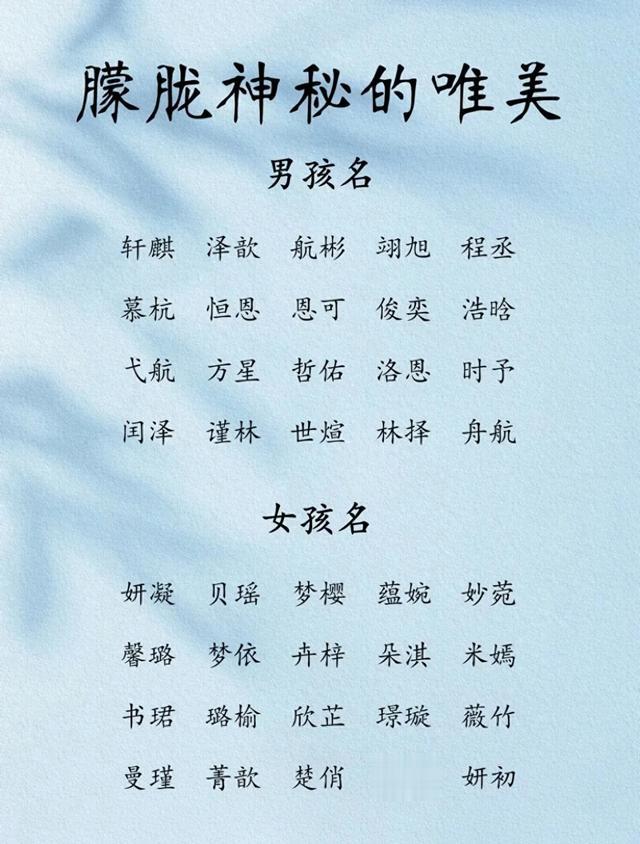 朦胧神秘的唯美
男孩名
轩麒 泽歆 航彬 翊旭 程丞
慕杭 恒恩 恩可 俊奕 浩晗
弋航 方星 哲佑 洛恩 时予
闰泽 谨林 世煊 林择 舟航
女孩名
妍凝 贝瑶 梦樱 蕴婉 妙菀
馨璐 梦依 卉梓 朵淇 米嫣
书珺 璐榆 欣芷 璟璇 薇竹
曼瑾 菁歆 楚俏 妍初